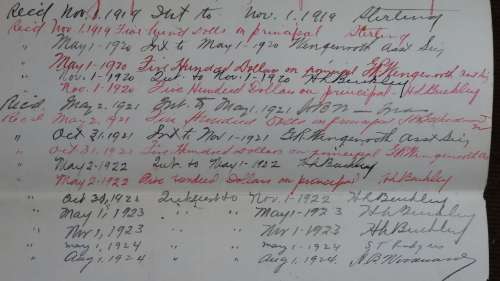 Rec'd Nov. 1. 1919 Int to Nov. 1. 1919 Sterling
Rec'd Nov 1. 1919 Five Hund Dolls on principal Sterling
" May 1-1920 Int to May 1-1920 Wengenroth Asst
" May 1-1920 Five Hundred Dollars on principal Wengenroth Asst
" Nov. 1-1920 Int. to Nov. 1-1920 H.L. Buckley
" Nov. 1-1920 Five Hundred Dollars on principal - H.L. Buckley
Rec'd. May 2. 1921 Int. to May 1. 1921
Rec'd May 2, 1921 Five Hundred Dolls on principal
" Oct 31. 1921 Int to Nov 1-1921 Wengenroth Asst
" Oct 31. 1921 Five Hundred Dollars on principal Wengenroth
" May 2-1922 Int. to May 1-1922 H.L. Buckley
" May 2-1922 Five Hundred Dollars on principal H.L. Buckley
" Oct 30, 1922 Interest to Nov. 1-1922 H.L. Buckley
" May 1, 1923 " " May 1-1923 H.L. Buckley
" Nov 1, 1923 " " Nov 1-1923 H.L. Buckley
" May 1, 1924 " " May 1-1924 Rodgers
" Aug 1, 1924 " " Aug 1, 1924. Woodward